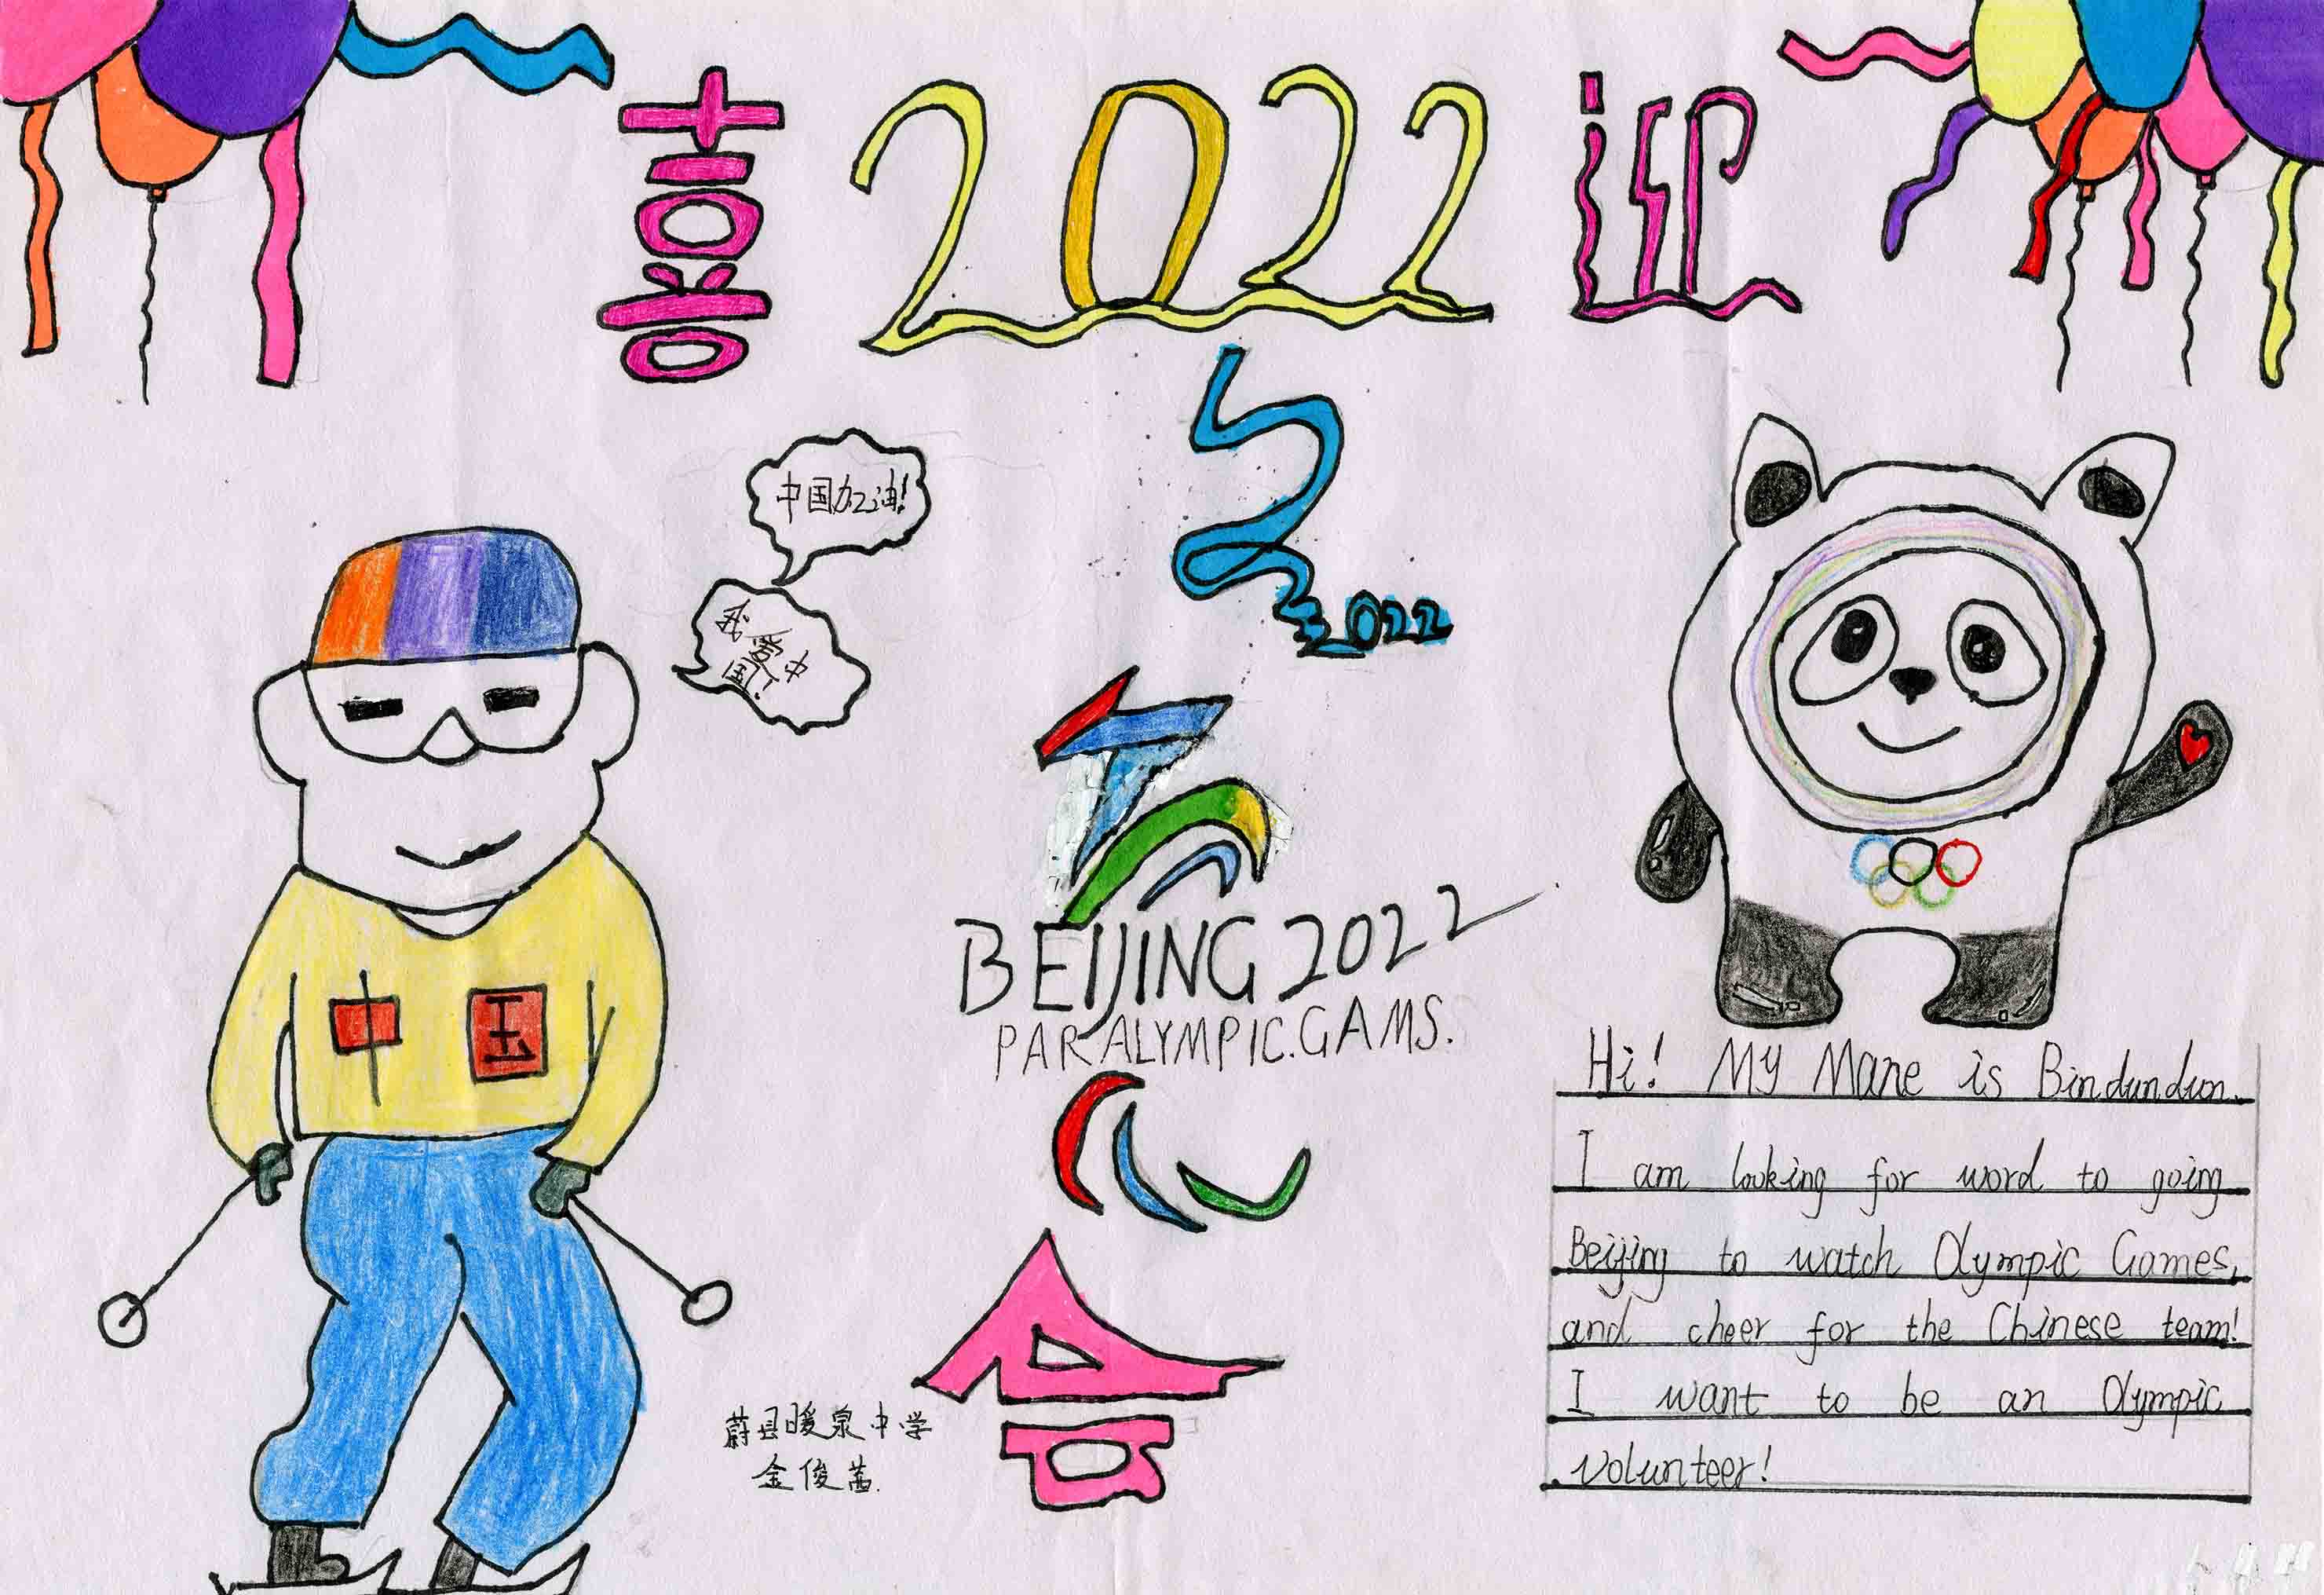 喜 2022 迎
冬
2022
中国加油!
我爱中
国!
中 国
BEIJING 2022
PARALYMPIC.GAMS.
会
蔚县暖泉中学
金俊茜.
Hi! My Mane is Bindundun.
I am looking for word to going
Beijing to watch Olympic Games,
and cheer for the Chinese team!
I want to be an Olympic
volunteer!